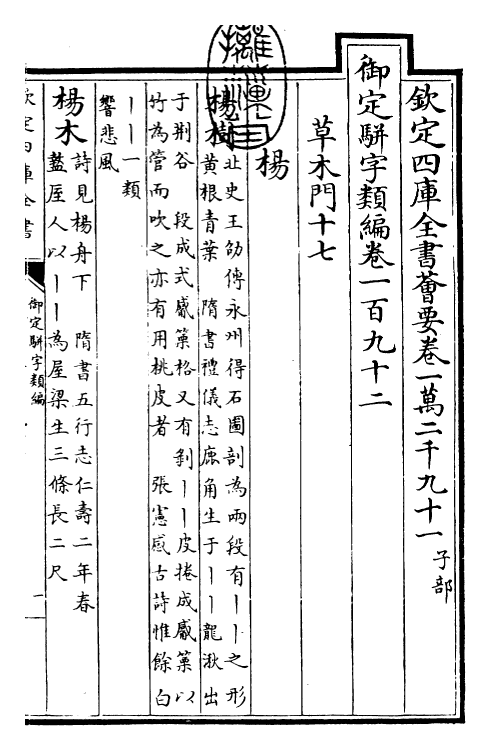 欽定四庫全書薈要卷一萬二千九十一子部
御定駢字類編卷一百九十二
草木門十七
楊
楊樹北史王劭傳永州得石圖剖為兩段有丨丨之形
黄根青葉　隋書禮儀志鹿角生于丨丨龍湫出
于荆谷　段成式觱篥格又有剝丨丨皮捲成觱篥以
竹為管而吹之亦有用桃皮者　張憲感古詩惟餘白
丨丨一類
響悲風
楊木詩見楊舟下　隋書五行志仁壽二年春
盩厔人以丨丨為屋梁生三條長二尺
欽定四庫全書
御定駢字類編
一